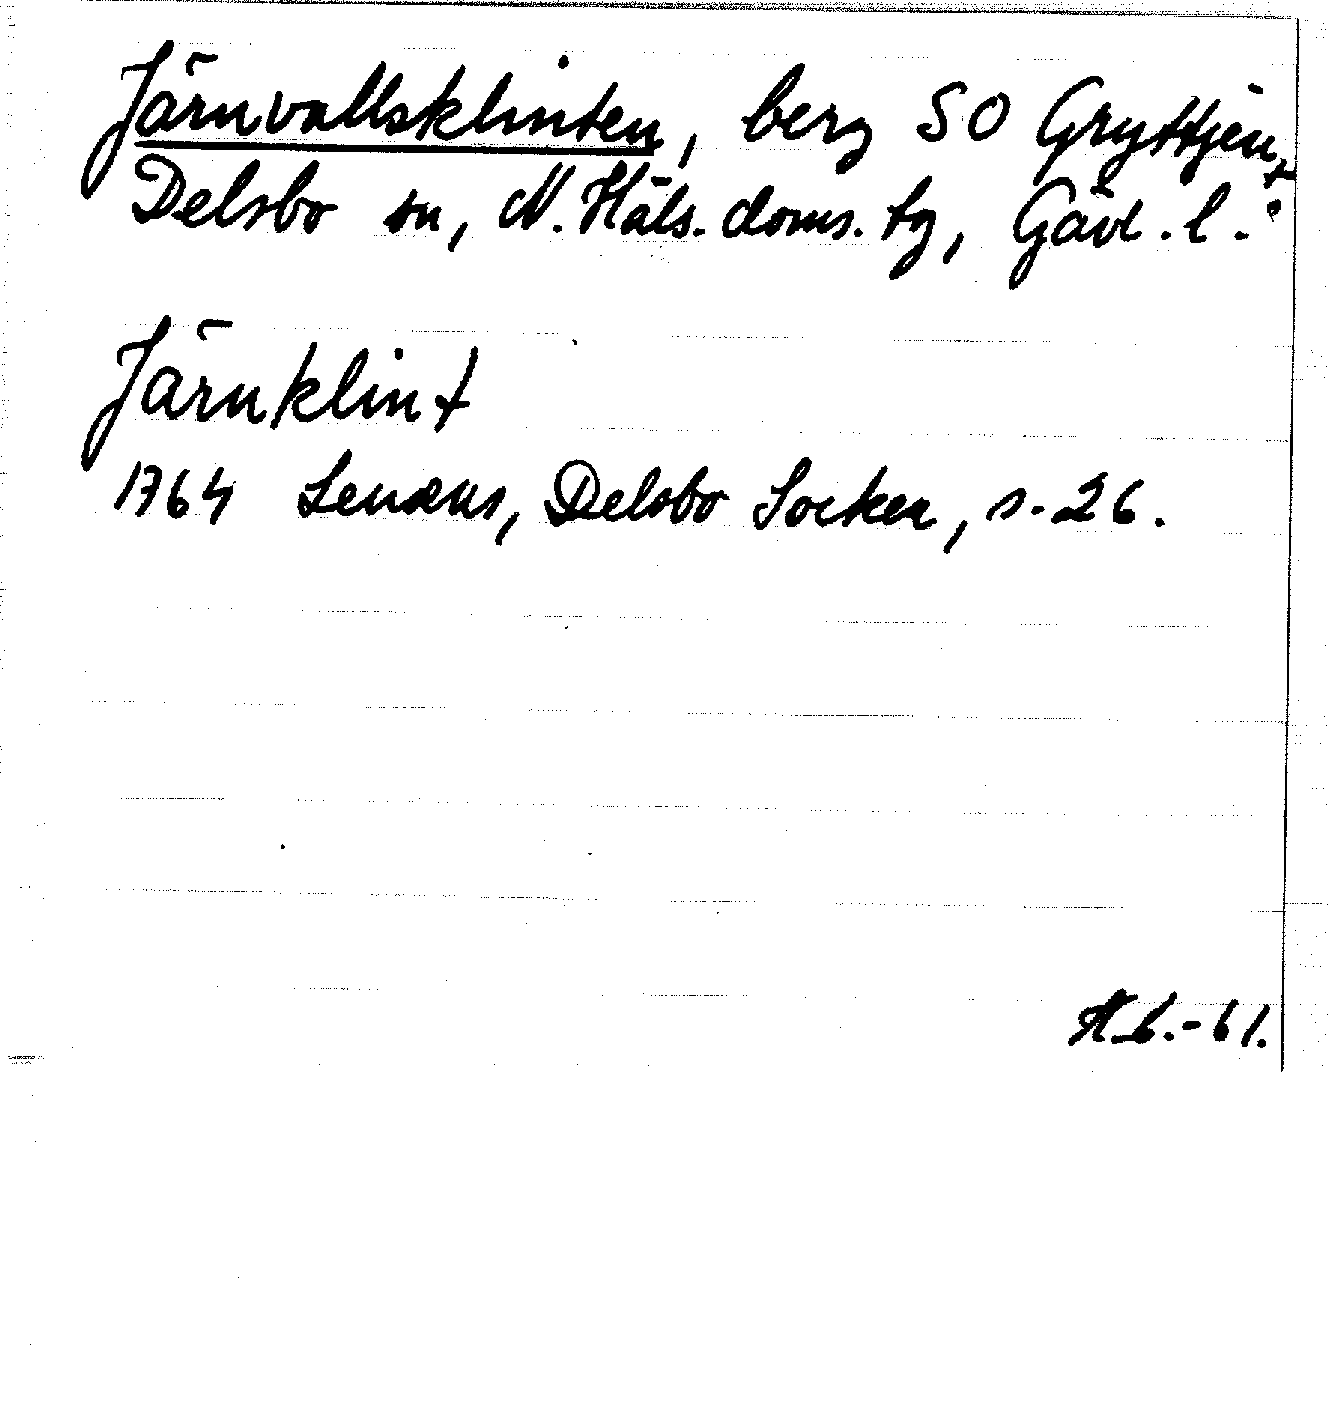 Järnvallsklinten, berg SO Gryttjen,
Delsbo sn, N. Häls. doms. tg, Gävl. l.
Järnklint
1764 Lenæus, Delsbo Socken, s. 26.
-61.